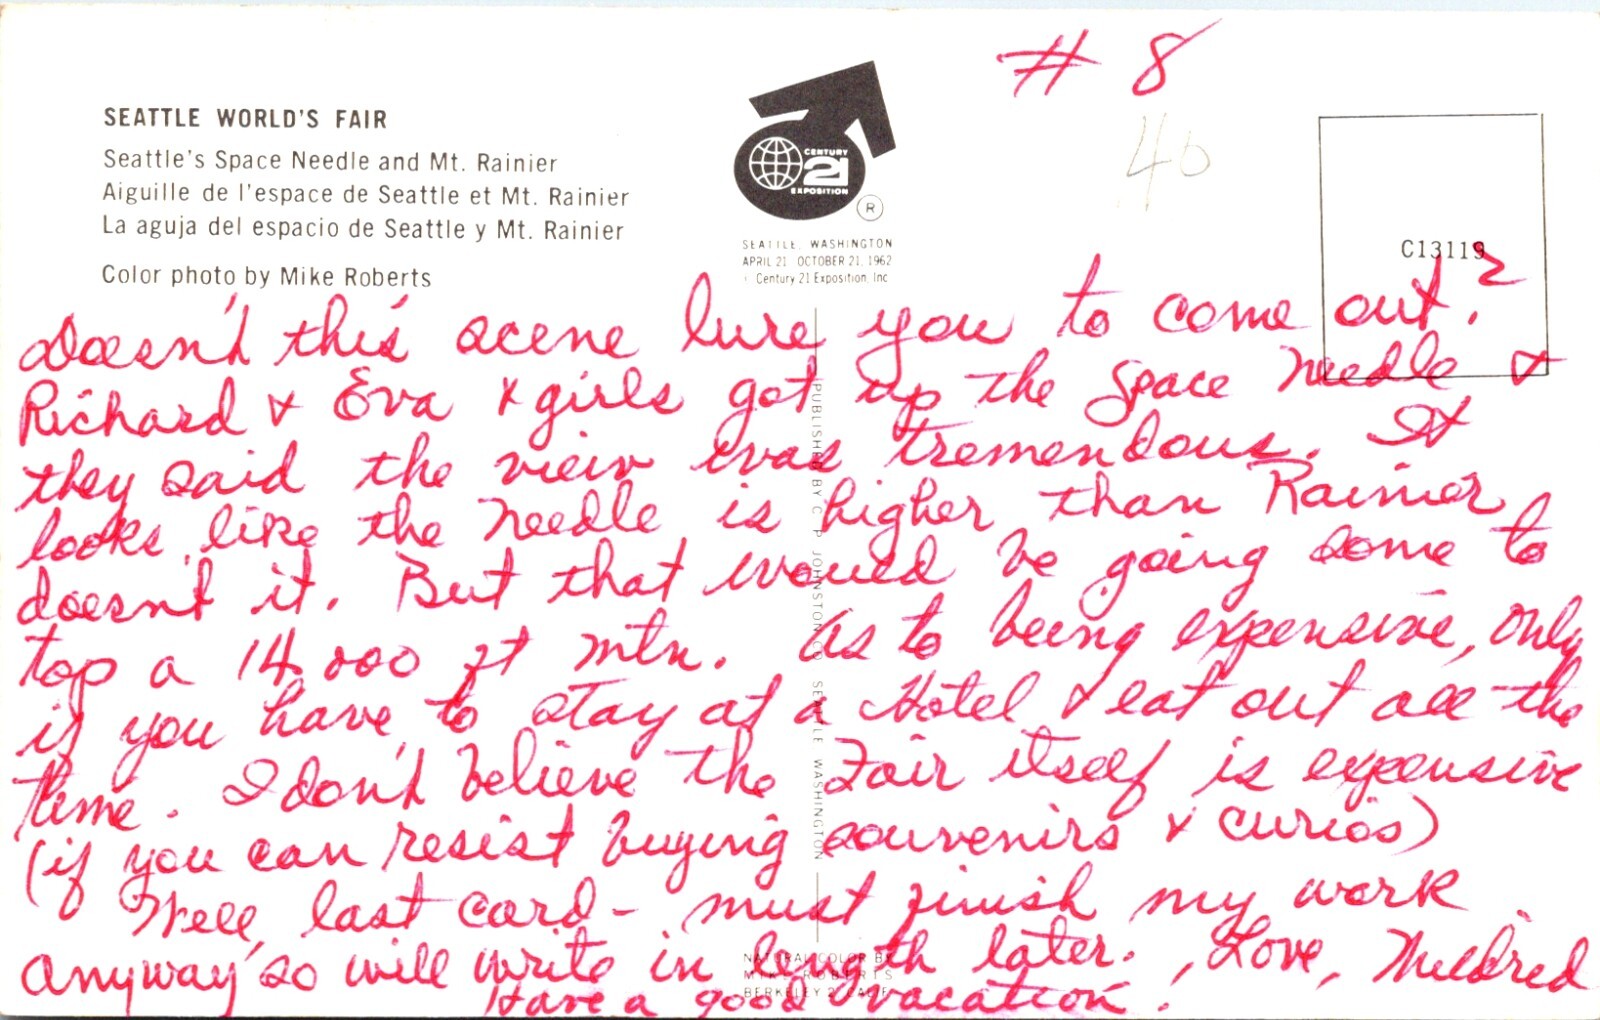 # 8
40
SEATTLE WORLD'S FAIR
Seattle's Space Needle and Mt. Rainier
Aiguille de l'espace de Seattle et Mt. Rainier
La aguja del espacio de Seattle y Mt. Rainier
Color photo by Mike Roberts
CENTURY
21
EXPOSITION
®
SEATTLE, WASHINGTON
APRIL 21 OCTOBER 21, 1962
Century 21 Exposition, Inc
C13119
Doesn't this scene lure you to come out?
Richard & Eva & girls got up the Space Needle &
they said the view was tremendous. It
looks like the Needle is higher than Rainier
doesn't it. But that would be going some to
top a 14,000 ft mtn. As to being expensive, only
if you have to stay at a Hotel & eat out all the
time. I don't believe the Fair itself is expensive
(if you can resist buying souvenirs & curios)
Well, last card - must finish my work
anyway so will write in length later. Love, Mildred
Have a good vacation!
PUBLISHED BY C. P. JOHNSTON CO. SEATTLE WASHINGTON
NATURAL COLOR BY
MIKE ROBERTS
BERKELEY 2, CALIF